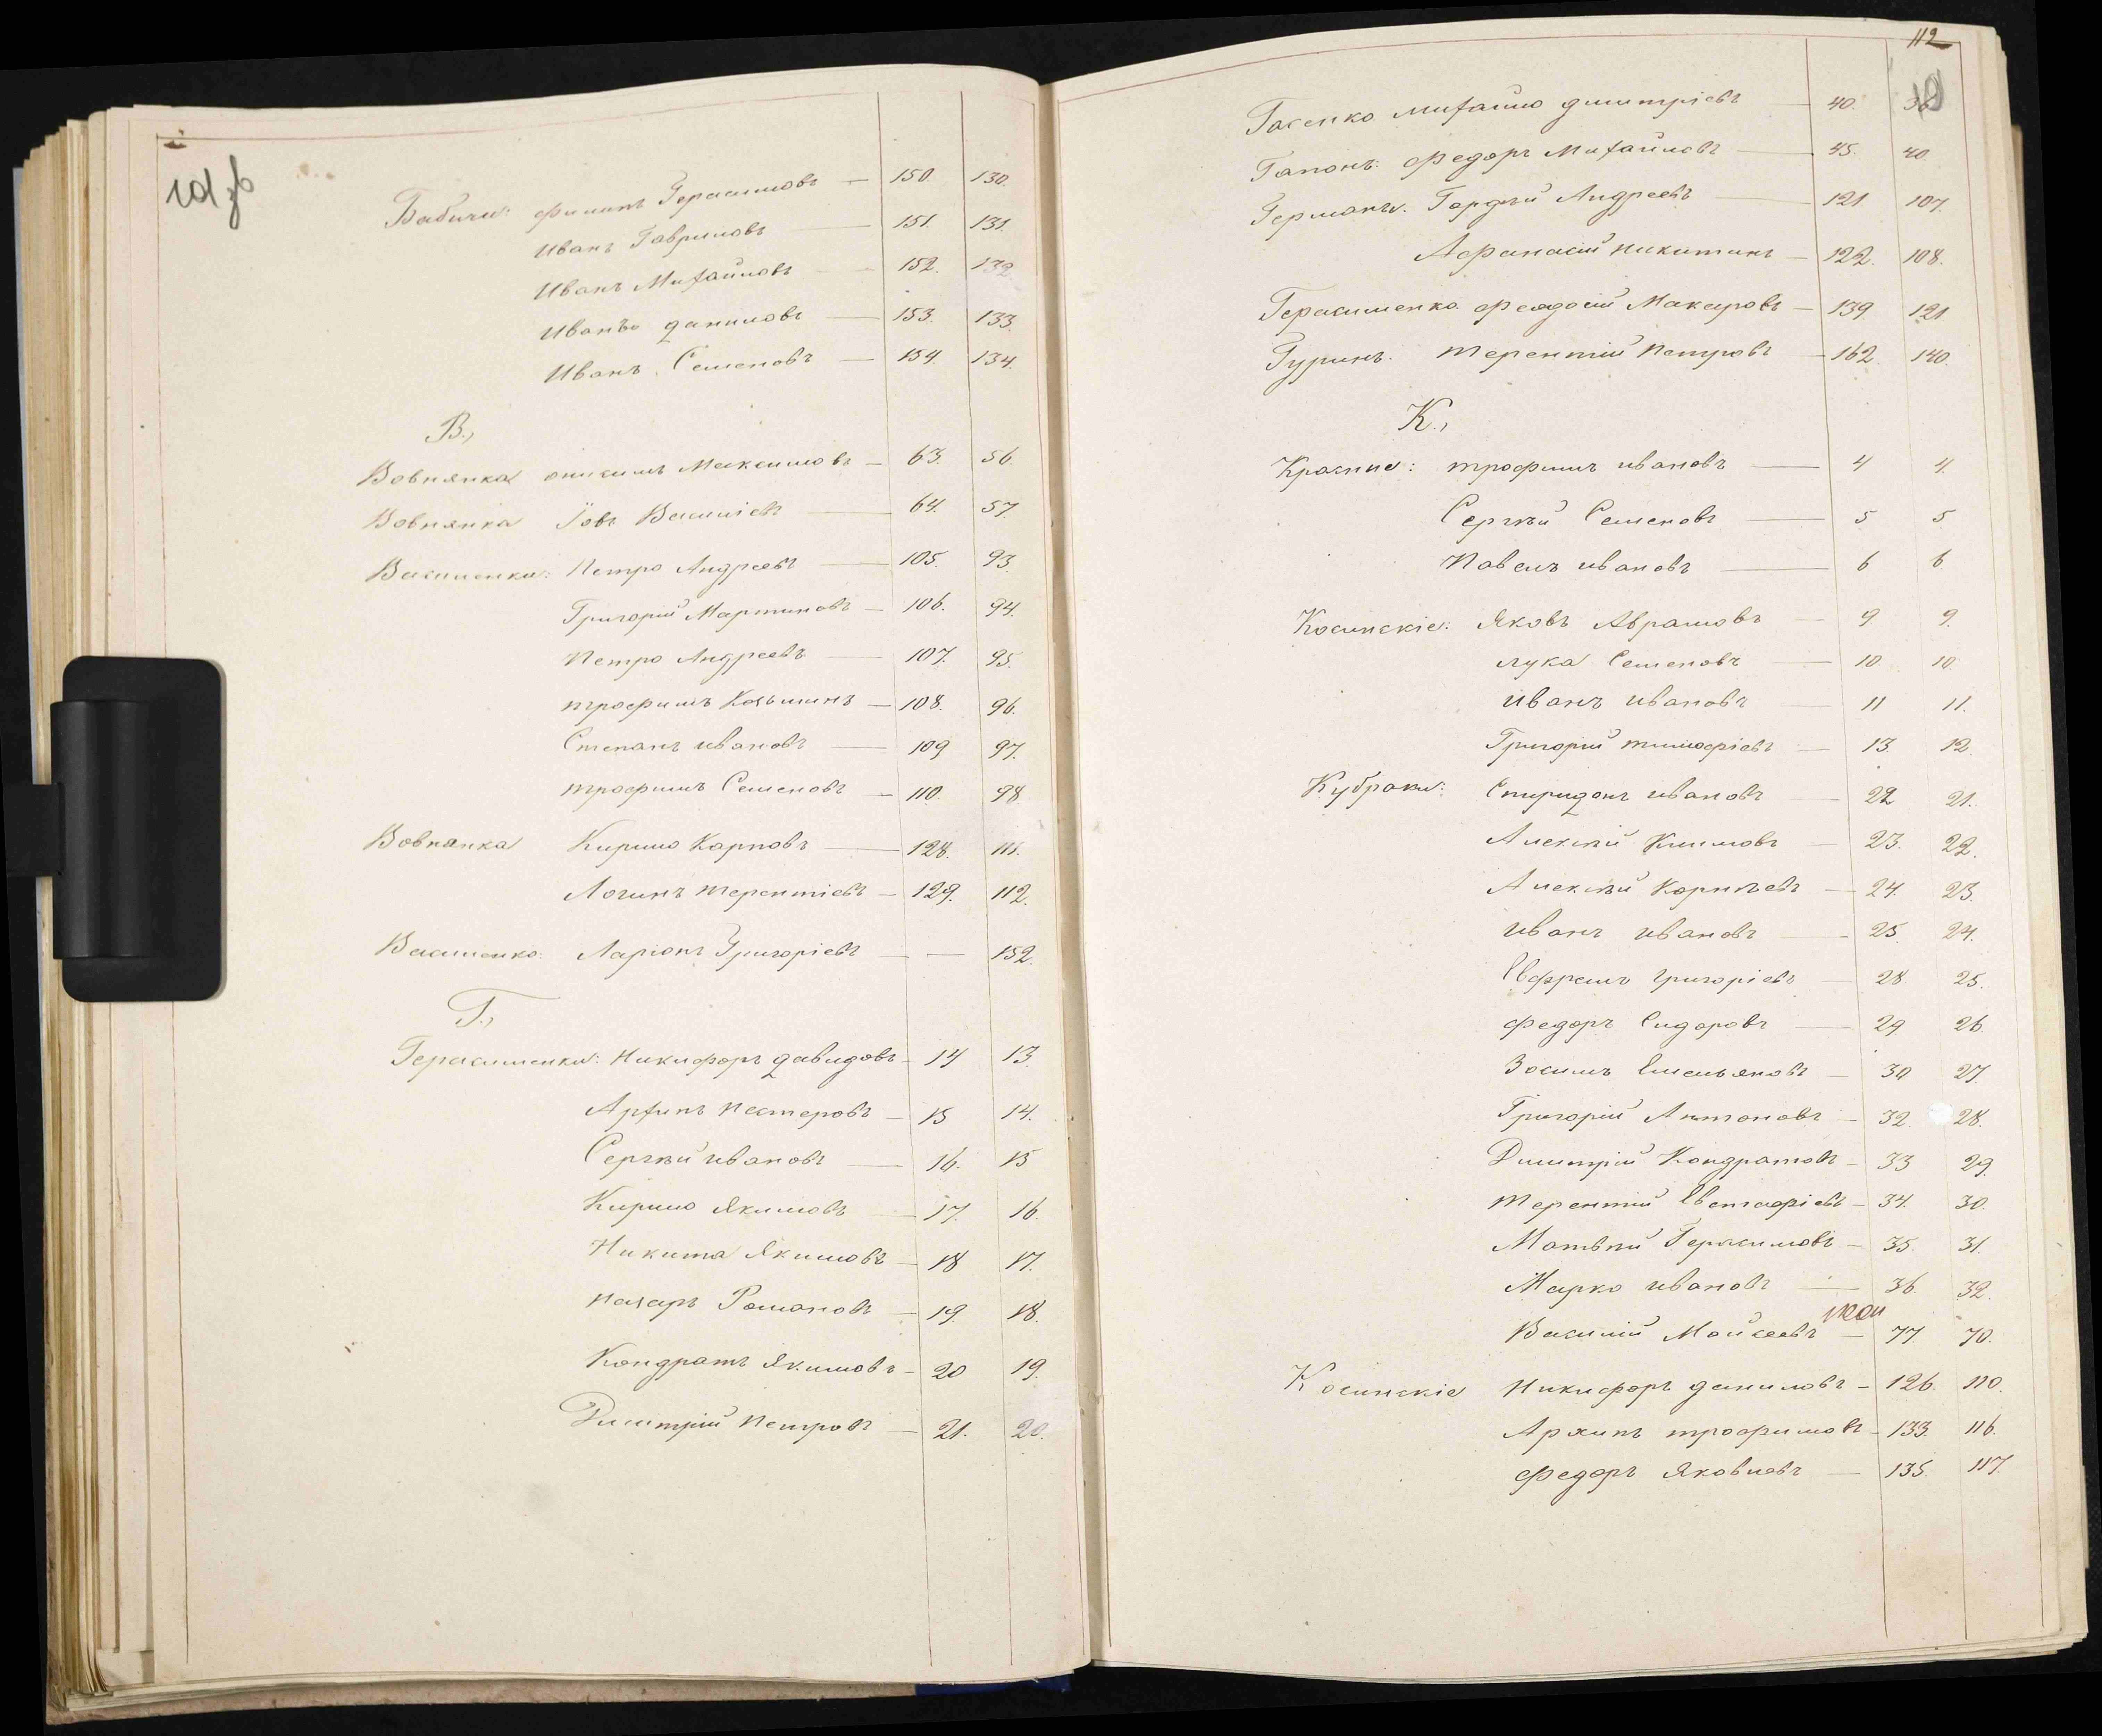 Бабичи: филипъ Герасимовъ — 150 130.
Иванъ Гавриловъ — 151. 131.
Иванъ Михайловъ — 152. 132
Иванъ даниловъ — 153. 133.
Иванъ Семеновъ — 154. 134.
В.,
Вовнянка онисимъ Максимовъ — 63. 56.
Вовнянка Іовъ Василіевъ — 64. 57.
Василенки: Петро Андреевъ — 105. 93.
Григорій Мартиновъ — 106. 94.
Петро Андреевъ — 107. 95.
трофимъ Козьминъ — 108. 96.
Степанъ ивановъ — 109 97.
трофимъ Семеновъ — 110. 98.
Вовнянка Кирило Карповъ — 128. 111.
Логинъ терентіевъ — 129. 112.
Василенко: Ларіонъ Григоріевъ — — 152.
Г.,
Герасименки: Никифоръ давидовъ — 14 13.
Архипъ Нестеровъ — 15 14.
Сергѣй ивановъ — 16. 15
Кирило Якимовъ — 17. 16.
Никита Якимовъ — 18 17.
Назаръ Романовъ — 19. 18.
Кондратъ Якимовъ — 20 19.
Димитрій Петровъ — 21. 20.
112
Гасенко михайло димитріевъ — 40. 36
Гапонъ: федоръ Михайловъ — 45. 40.
Германы. Гордѣй Андреевъ — 121. 107.
Афанасій никитинъ — 122. 108.
Герасименко феодосій Макаровъ — 139. 121.
Гуринъ. терентій Петровъ — 162. 140.
К.,
Красние: трофимъ ивановъ — 4 4.
Сергѣй Семеновъ — 5 5.
Павелъ ивановъ — 6 6
Косинскіе: Яковъ Аврамовъ — 9. 9.
лука Семеновъ — 10. 10.
иванъ ивановъ — 11 11.
Григорій тимофіевъ — 13. 12.
Кубраки: Спиридонъ ивановъ — 22 21.
Алексѣй Климовъ — 23. 22.
Алексѣй Корнѣевъ — 24. 23.
иванъ ивановъ — 25. 24.
Евфремъ григоріевъ — 28. 25.
федоръ Сидоровъ — 29 26.
Зосимъ Емельяновъ — 30 27.
Григорій Антоновъ — 32. 28.
Димитрій Кондратовъ — 33 29.
терентій Евстафіевъ — 34. 30.
Матвѣй Герасимовъ — 35. 31.
Марко ивановъ — 36. 32.
Василій Мойсеевъ — 77. 70.
Косинскіе Никифоръ даниловъ — 126. 110.
Архипъ трофимовъ — 133. 116.
федоръ Яковлевъ — 135. 117.